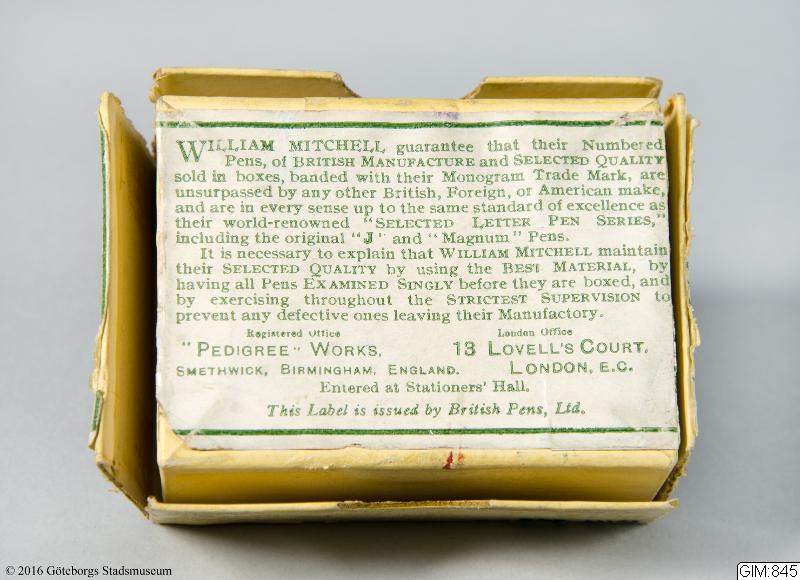 WILLIAM MITCHELL guarantee that their Numbered
Pens, of BRITISH MANUFACTURE and SELECTED QUALITY
sold in boxes, banded with their Monogram Trade Mark, are
unsurpassed by any other British, Foreign, or American make,
and are in every sense up to the same standard of excellence as
their world-renowned "SELECTED LETTER PEN SERIES,"
including the original "J" and "Magnum" Pens.
It is necessary to explain that WILLIAM MITCHELL maintain
their SELECTED QUALITY by using the BEST MATERIAL, by
having all Pens EXAMINED SINGLY before they are boxed, and
by exercising throughout the STRICTEST SUPERVISION to
prevent any defective ones leaving their Manufactory.
Registered Office
"PEDIGREE" WORKS,
SMETHWICK, BIRMINGHAM, ENGLAND.
London Office
13 LOVELL'S COURT,
LONDON, E.C.
Entered at Stationers' Hall.
This Label is issued by British Pens, Ltd.
© 2016 Göteborgs Stadsmuseum
GIM:845